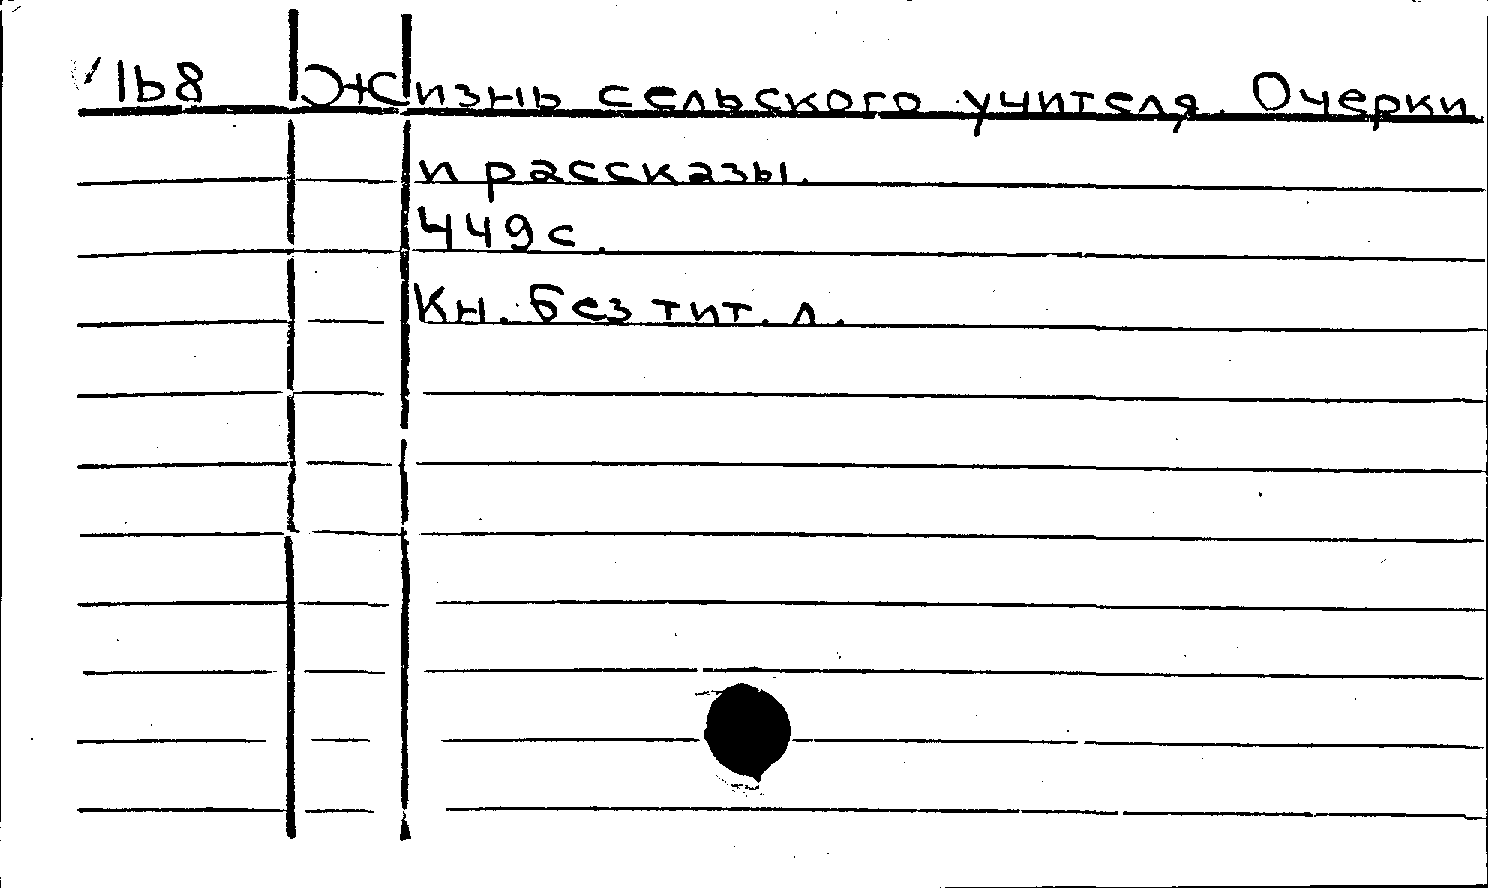 1b8 Жизнь сельского учителя. Очерки
и рассказы.
449 с.
Кн. без тит. л.